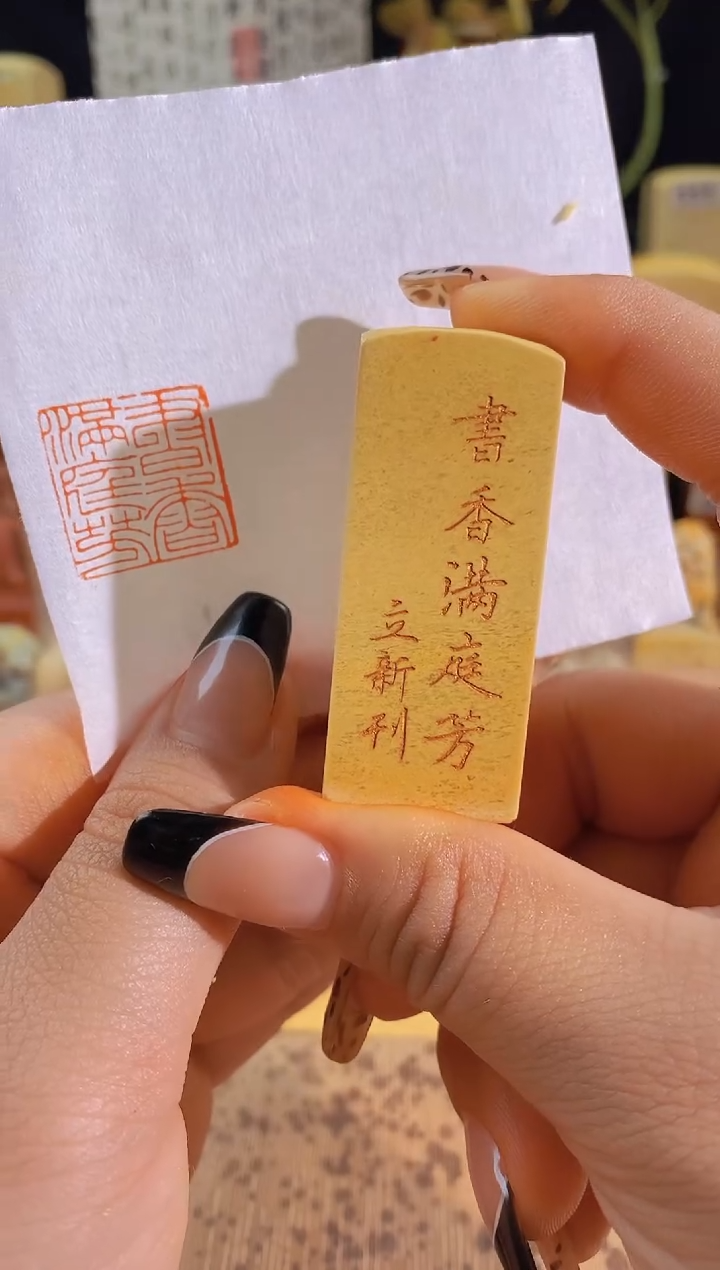 書香滿庭芳
書香满庭芳
立新刊